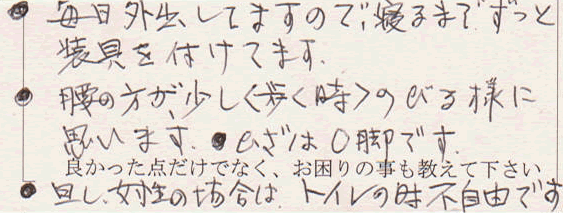 ● 毎日外出してますので、寝るまでずっと
装具を付けてます.
● 腰の方が、少し<歩く時>のびる様に
思います. ● ひざはO脚です.
良かった点だけでなく、お困りの事も教えて下さい
● 但し、女性の場合は、トイレの時不自由です